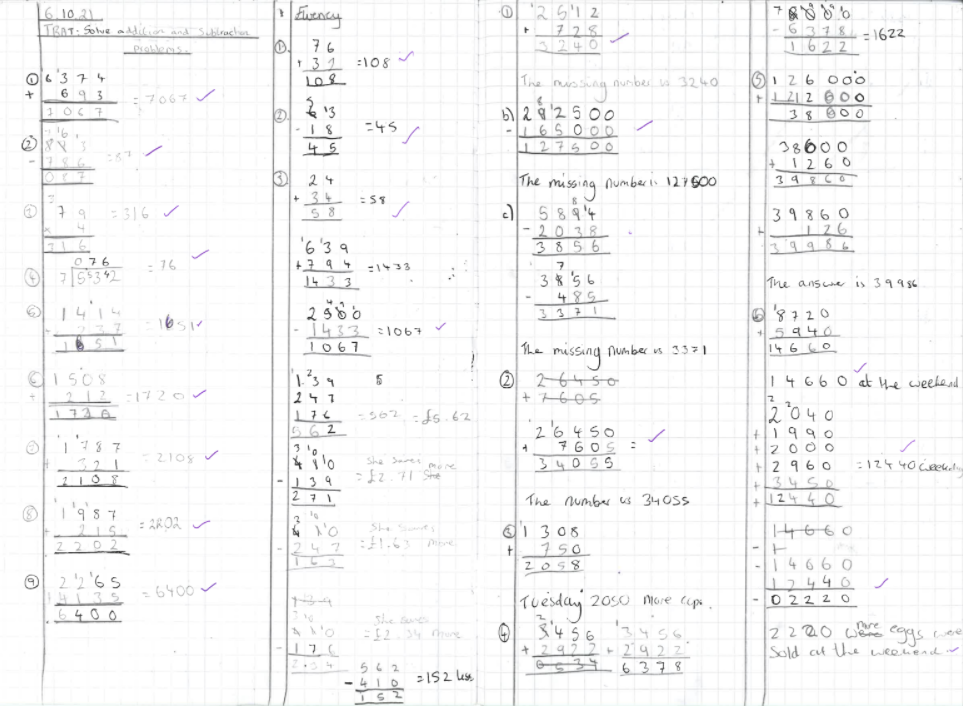 6.10.21
TBAT: Solve addition and subtraction
problems.
① 6 3 7 4
+ 6 9 3 = 7067
7 0 6 7
②
- 7 8 6 = 87
0 8 7
7 9 = 316
× 4
3 1 6
④ 0 7 6 = 76
7 5 3 2
1 4 1 4
- 2 3 7 = 1651
1 6 5 1
1 5 0 8
+ 2 1 2 = 1720
1 7 2 0
1 7 8 7
+ 3 2 1 = 2108
2 1 0 8
⑧ 1 9 8 7
+ 2 1 5 = 2202
2 2 0 2
⑨ 2 2 6 5
4 1 3 5 = 6400
6 4 0 0
Fluency
① 7 6
+ 3 2 = 108
1 0 8
② 6 3
- 1 8 = 45
4 5
③ 2 4
+ 3 4 = 58
5 8
6 3 9
+ 7 9 4 = 1433
1 4 3 3
2 5 0 0
- 1 4 3 3 = 1067
1 0 6 7
1 3 9
2 4 7
1 7 6 = 562 = £5.62
5 6 2
4 1 0 She saves more
- 1 3 9 = £2.71 She
2 7 1
4 1 0 She saves
- 2 4 7 = £1.63 more
1 6 3
1 3 9
4 1 0 She saves
- 1 7 6 = £2.34 more
2 3 4
5 6 2
- 4 1 0 = 152 less
1 5 2
① 2 5 1 2
+ 7 2 8
3 2 4 0
The missing number is 3240
b) 2 9 2 5 0 0
- 1 6 5 0 0 0
1 2 7 5 0 0
The missing number is 127500
c) 5 8 9 4
- 2 0 3 8
3 8 5 6
3 8 5 6
- 4 8 5
3 3 7 1
The missing number is 3371
② 2 6 4 5 0
+ 7 6 0 5
2 6 4 5 0
+ 7 6 0 5 =
3 4 0 5 5
The number is 34055
③ 1 3 0 8
+ 7 5 0
2 0 5 8
Tuesday 2050 more cups.
④ 3 4 5 6 3 4 5 6
+ 2 9 2 2 + 2 9 2 2
0 5 3 4 6 3 7 8
8 0 0 0
- 6 3 7 8 = 1622
1 6 2 2
⑤ 1 2 6 0 0 0
+ 1 2 1 2 6 0 0
3 8 6 0 0
3 8 6 0 0
+ 1 2 6 0
3 9 8 6 0
3 9 8 6 0
+ 1 2 6
3 9 9 8 6
The answer is 39986
⑥ 8 7 2 0
+ 5 9 4 0
1 4 6 6 0
1 4 6 6 0 at the weekend
2 0 4 0
+ 1 9 9 0
+ 2 0 0 0
+ 2 9 6 0 = 12440 weekday
+ 3 4 5 0
1 2 4 4 0
1 4 6 6 0
- 1
- 1 4 6 6 0
1 2 4 4 0
- 0 2 2 2 0
2220 more eggs were
Sold at the weekend